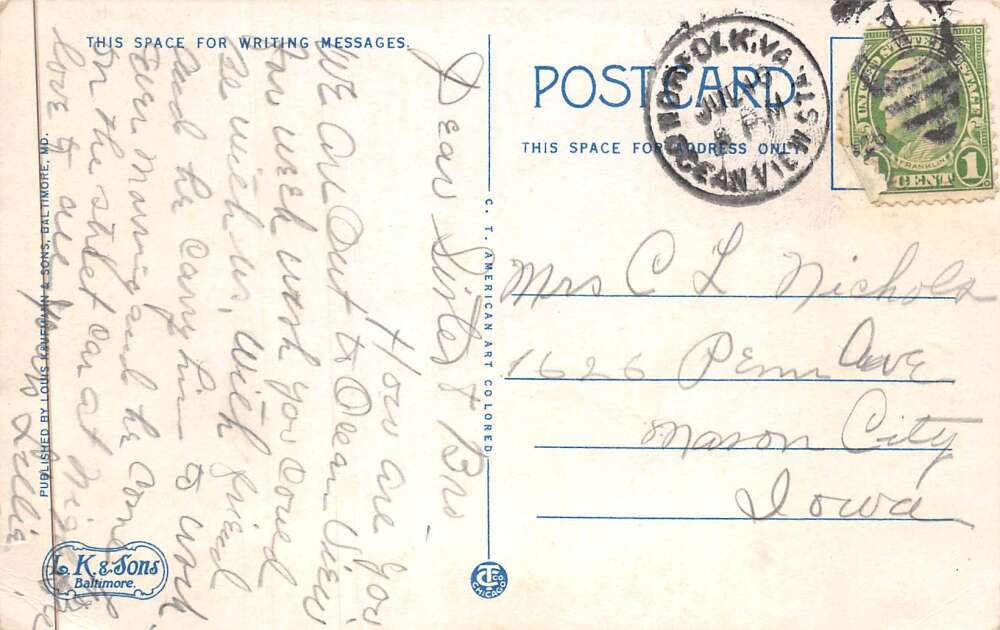 THIS SPACE FOR WRITING MESSAGES.
Dear Sister & Bro.
How are you
We are out to Ocean View
for week wish you could
be with us, with friend
and he carry him to work
Ever morning and he come
in the street car at night
love to all
Lillie
PUBLISHED BY LOUIS KAUFMANN & SONS, BALTIMORE, MD.
L. K. & Sons
Baltimore.
C. T. AMERICAN ART COLORED
CT CO
CHICAGO
POST CARD
THIS SPACE FOR ADDRESS ONLY
NORFOLK, VA
JUL
PM
OCEAN VIEW STA
UNITED STATES POSTAGE
FRANKLIN
1 CENT 1
Mrs C L Nichols
1626 Penn Ave
Mason City
Iowa